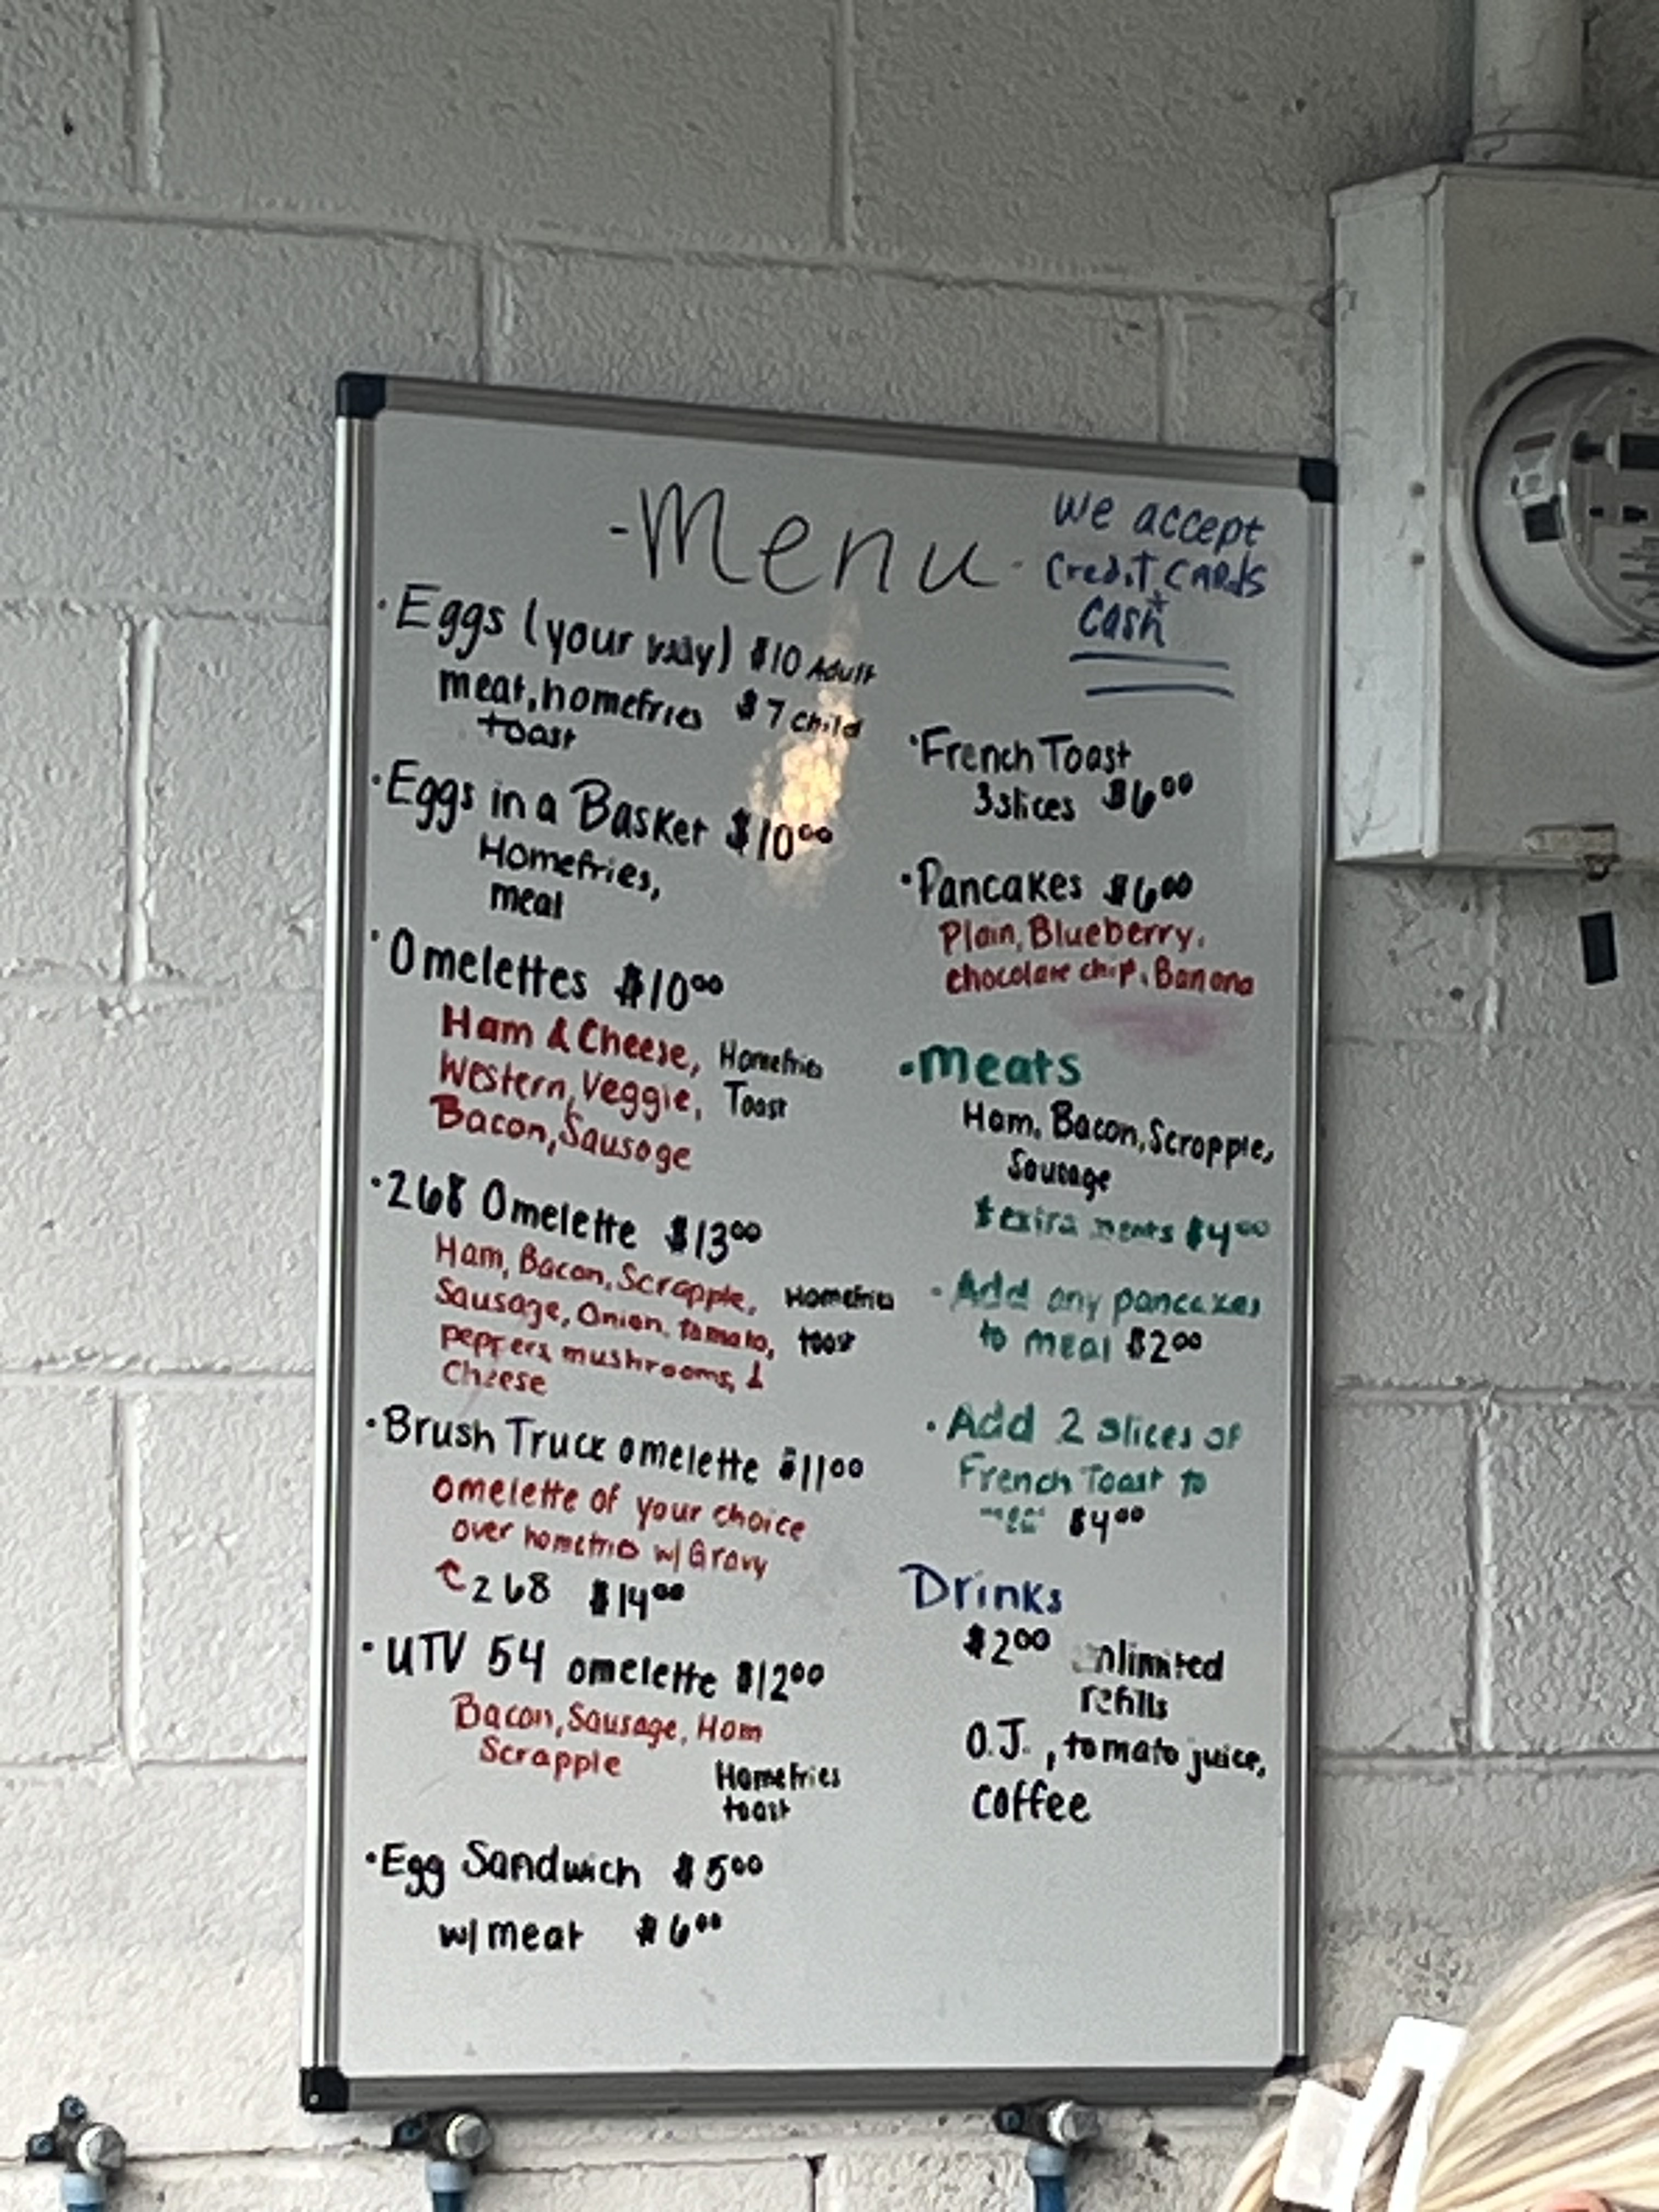 -Menu-
We accept
Credit CARds
+
Cash
·Eggs (your way) $10 Adult
meat, homefries $7 child
toast
·Eggs in a Basket $10⁰⁰
Homefries,
meat
·Omelettes $10⁰⁰
Ham & Cheese, Homefries
Western, Veggie, Toast
Bacon, Sausage
·268 Omelette $13⁰⁰
Ham, Bacon, Scrapple, Homefries
Sausage, Onion, tomato, toast
peppers, mushrooms, &
Cheese
·Brush Truck omelette $11⁰⁰
omelette of your choice
over homefries w/ Gravy
268 $14⁰⁰
·UTV 54 omelette $12⁰⁰
Bacon, Sausage, Ham
Scrapple
Homefries
toast
·Egg Sandwich $5⁰⁰
w/ meat $6⁰⁰
·French Toast
3 slices $6⁰⁰
·Pancakes $6⁰⁰
Plain, Blueberry,
chocolate chip, Banana
·meats
Ham, Bacon, Scrapple,
Sausage
extra meats $4⁰⁰
·Add any pancakes
to meal $2⁰⁰
·Add 2 slices of
French Toast to
$4⁰⁰
Drinks
$2⁰⁰ unlimited
refills
O.J., tomato juice,
coffee